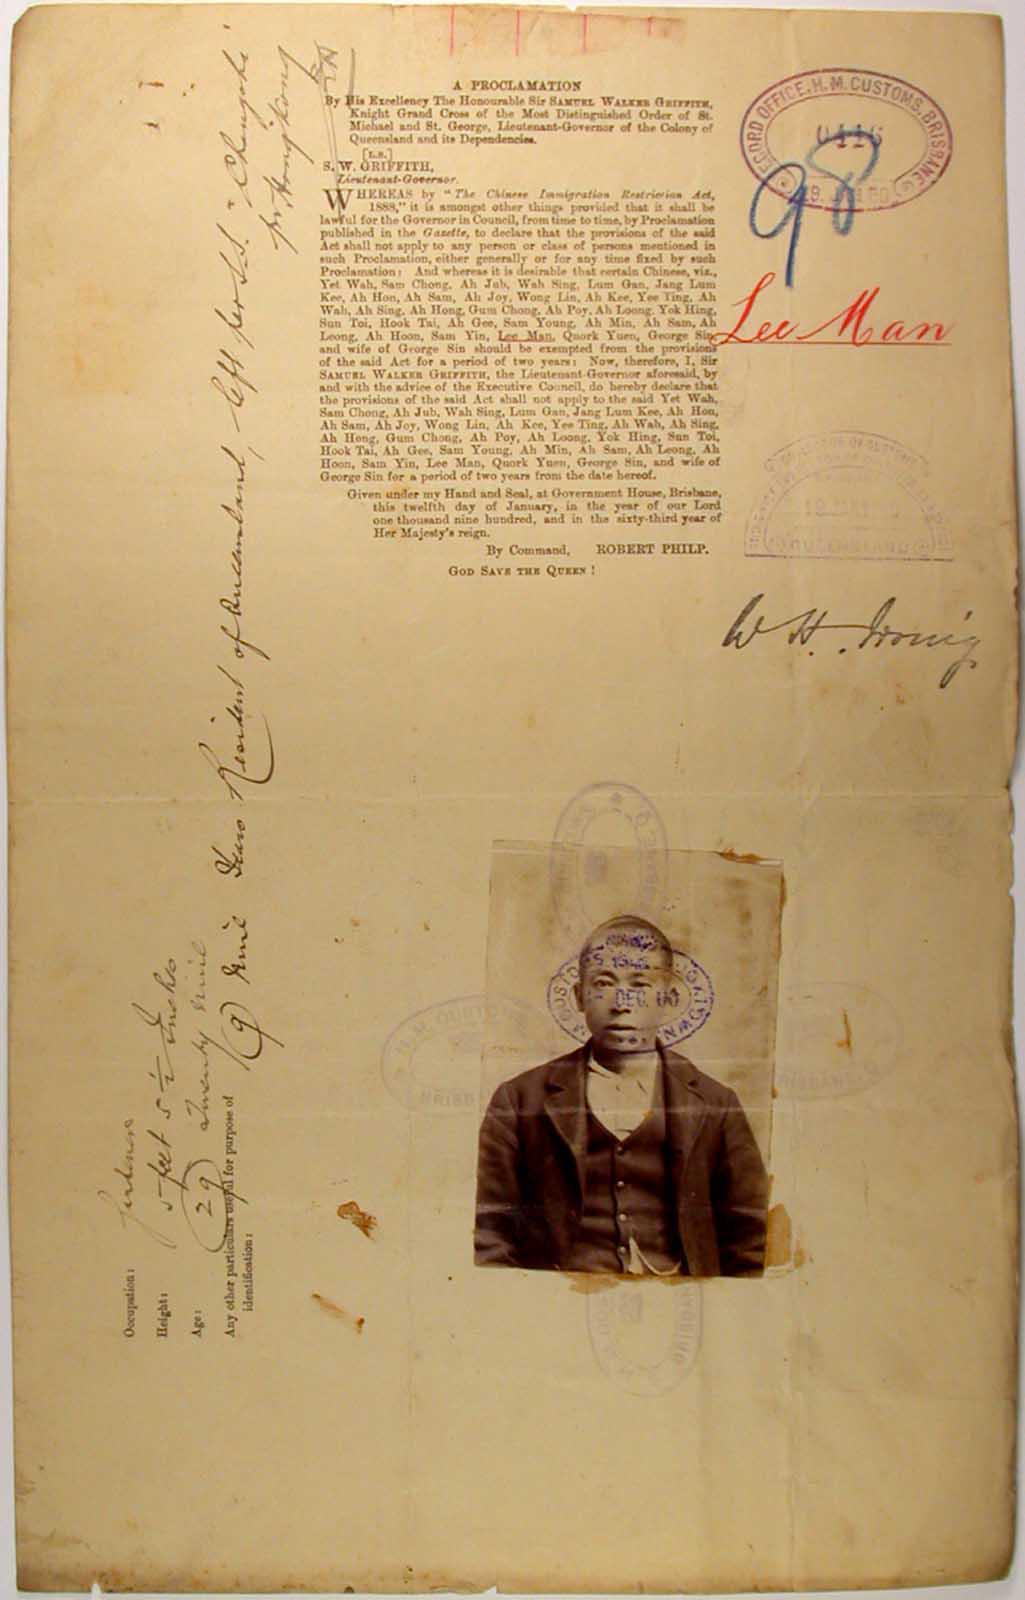 A PROCLAMATION
By His Excellency The Honourable Sir SAMUEL WALKER GRIFFITH,
Knight Grand Cross of the Most Distinguished Order of St.
Michael and St. George, Lieutenant-Governor of the Colony of
Queensland and its Dependencies.
[L.S.]
S. W. GRIFFITH,
Lieutenant-Governor.
WHEREAS by "The Chinese Immigration Restriction Act,
1888," it is amongst other things provided that it shall be
lawful for the Governor in Council, from time to time, by Proclamation
published in the Gazette, to declare that the provisions of the said
Act shall not apply to any person or class of persons mentioned in
such Proclamation, either generally or for any time fixed by such
Proclamation: And whereas it is desirable that certain Chinese, viz.,
Yet Wah, Sam Chong, Ah Jub, Wah Sing, Lum Gan, Jang Lum
Kee, Ah Hon, Ah Sam, Ah Joy, Wong Lin, Ah Kee, Yee Ting, Ah
Wah, Ah Sing, Ah Hong, Gum Chong, Ah Poy, Ah Loong, Yok Hing,
Sun Toi, Hook Tai, Ah Gee, Sam Young, Ah Min, Ah Sam, Ah
Leong, Ah Hoon, Sam Yin, Lee Man, Quork Yuen, George Sin,
and wife of George Sin should be exempted from the provisions
of the said Act for a period of two years: Now, therefore, I, Sir
SAMUEL WALKER GRIFFITH, the Lieutenant-Governor aforesaid, by
and with the advice of the Executive Council, do hereby declare that
the provisions of the said Act shall not apply to the said Yet Wah,
Sam Chong, Ah Jub, Wah Sing, Lum Gan, Jang Lum Kee, Ah Hon,
Ah Sam, Ah Joy, Wong Lin, Ah Kee, Yee Ting, Ah Wah, Ah Sing,
Ah Hong, Gum Chong, Ah Poy, Ah Loong, Yok Hing, Sun Toi,
Hook Tai, Ah Gee, Sam Young, Ah Min, Ah Sam, Ah Leong, Ah
Hoon, Sam Yin, Lee Man, Quork Yuen, George Sin, and wife of
George Sin for a period of two years from the date hereof.
Given under my Hand and Seal, at Government House, Brisbane,
this twelfth day of January, in the year of our Lord
one thousand nine hundred, and in the sixty-third year of
Her Majesty's reign.
By Command, ROBERT PHILP.
GOD SAVE THE QUEEN!
RECORD OFFICE, H.M. CUSTOMS, BRISBANE
0416
98
Lee Man
QUEENSLAND
W H. Irving
DEC. 00
Occupation: Gardener
Height: 5 feet 5 ½ Inches
Age: (29) Twenty nine
Any other particulars useful for purpose of
identification:
(9) nine Years Resident of Queensland, left per S.S. "Chingtu"
for Hong Kong